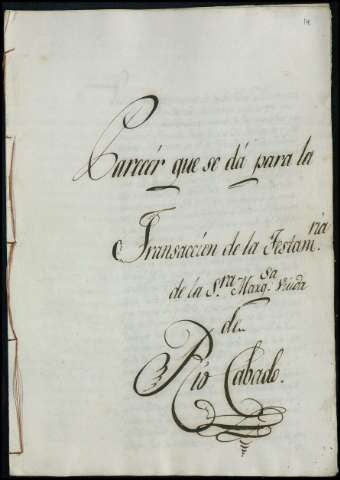 Parecér que se dá para la
Transaccion de la Testam.ria
de la S.ra Marq.sa Viuda
de
Rio Cabado.